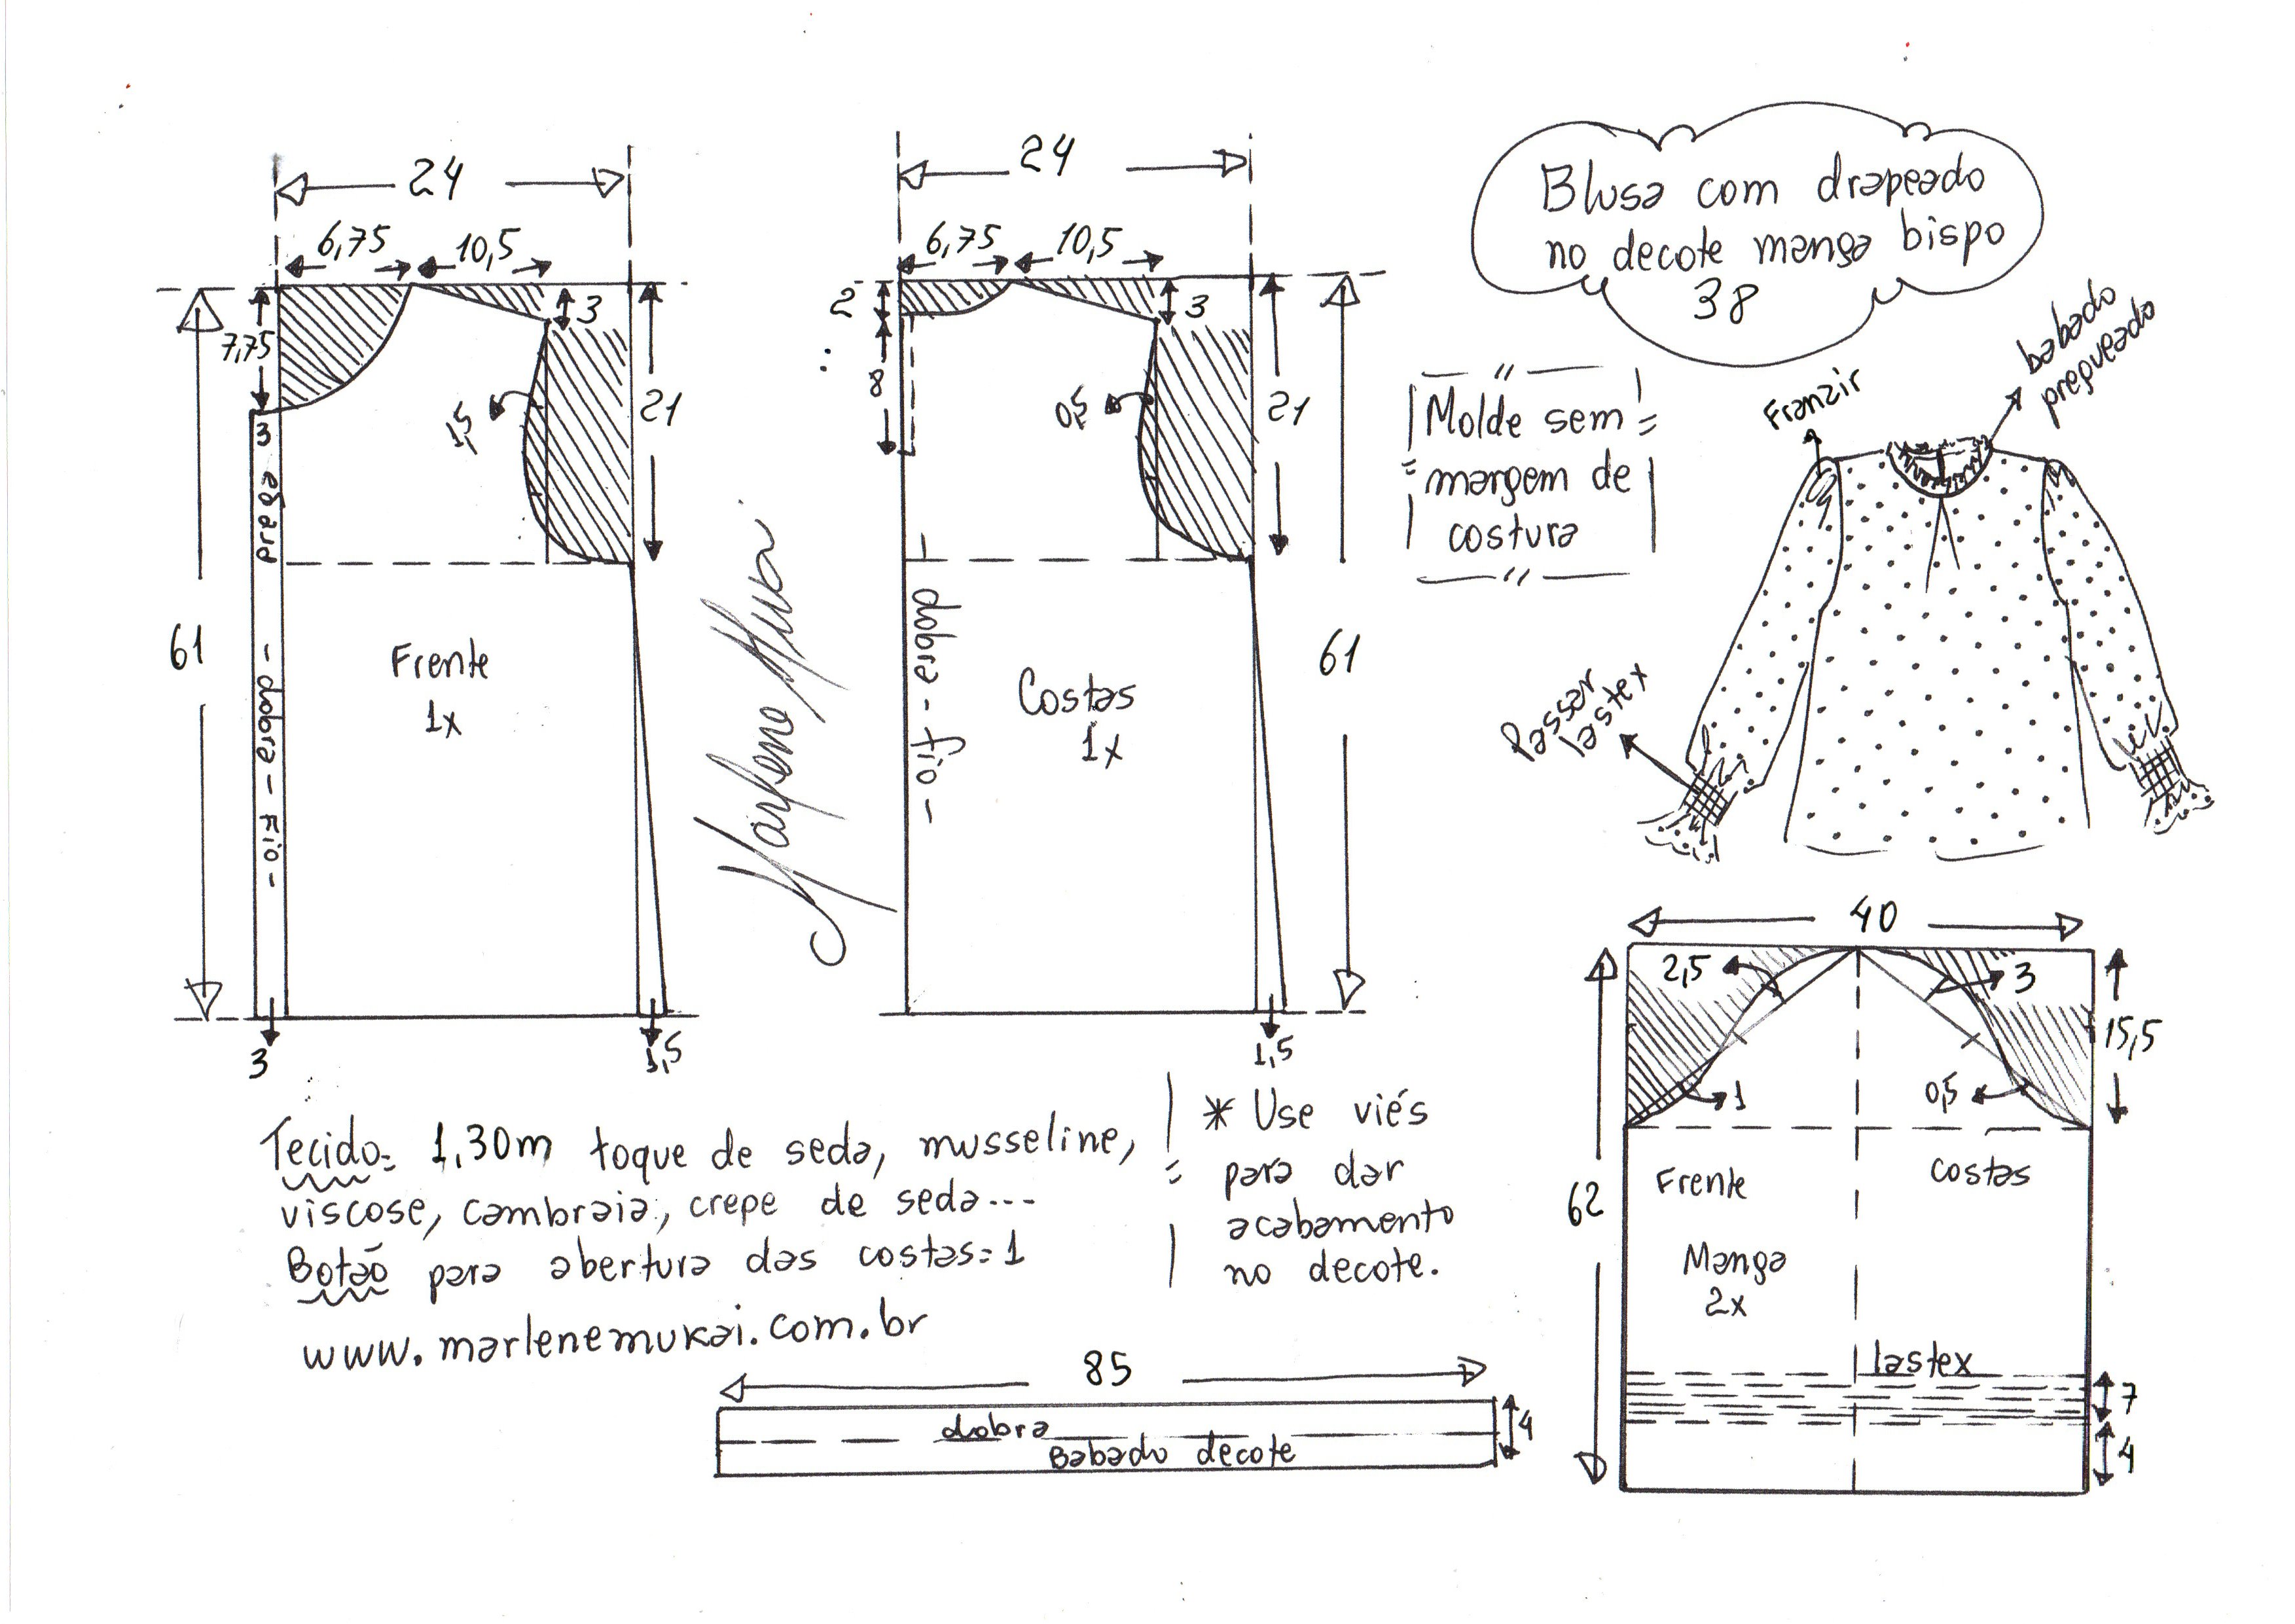 24
6,75
10,5
7,75
3
3
1,5
21
prega
- dobra - Fio -
61
Frente
1x
3
1,5
24
6,75
10,5
2
3
8
0,5
21
dobra - fio -
Costas
1x
61
1,5
Blusa com drapeado
no decote manga bispo
38
Molde sem
margem de
costura
Franzir
babado
pregueado
Passar
lastex
40
2,5
3
15,5
1
0,5
Frente
costas
62
Manga
2x
lastex
7
4
Tecido= 1,30m toque de seda, musseline,
viscose, cambraia, crepe de seda---
Botão para abertura das costas=1
www.marlenemukai.com.br
* Use viés
para dar
acabamento
no decote.
85
dobra
Babado decote
4